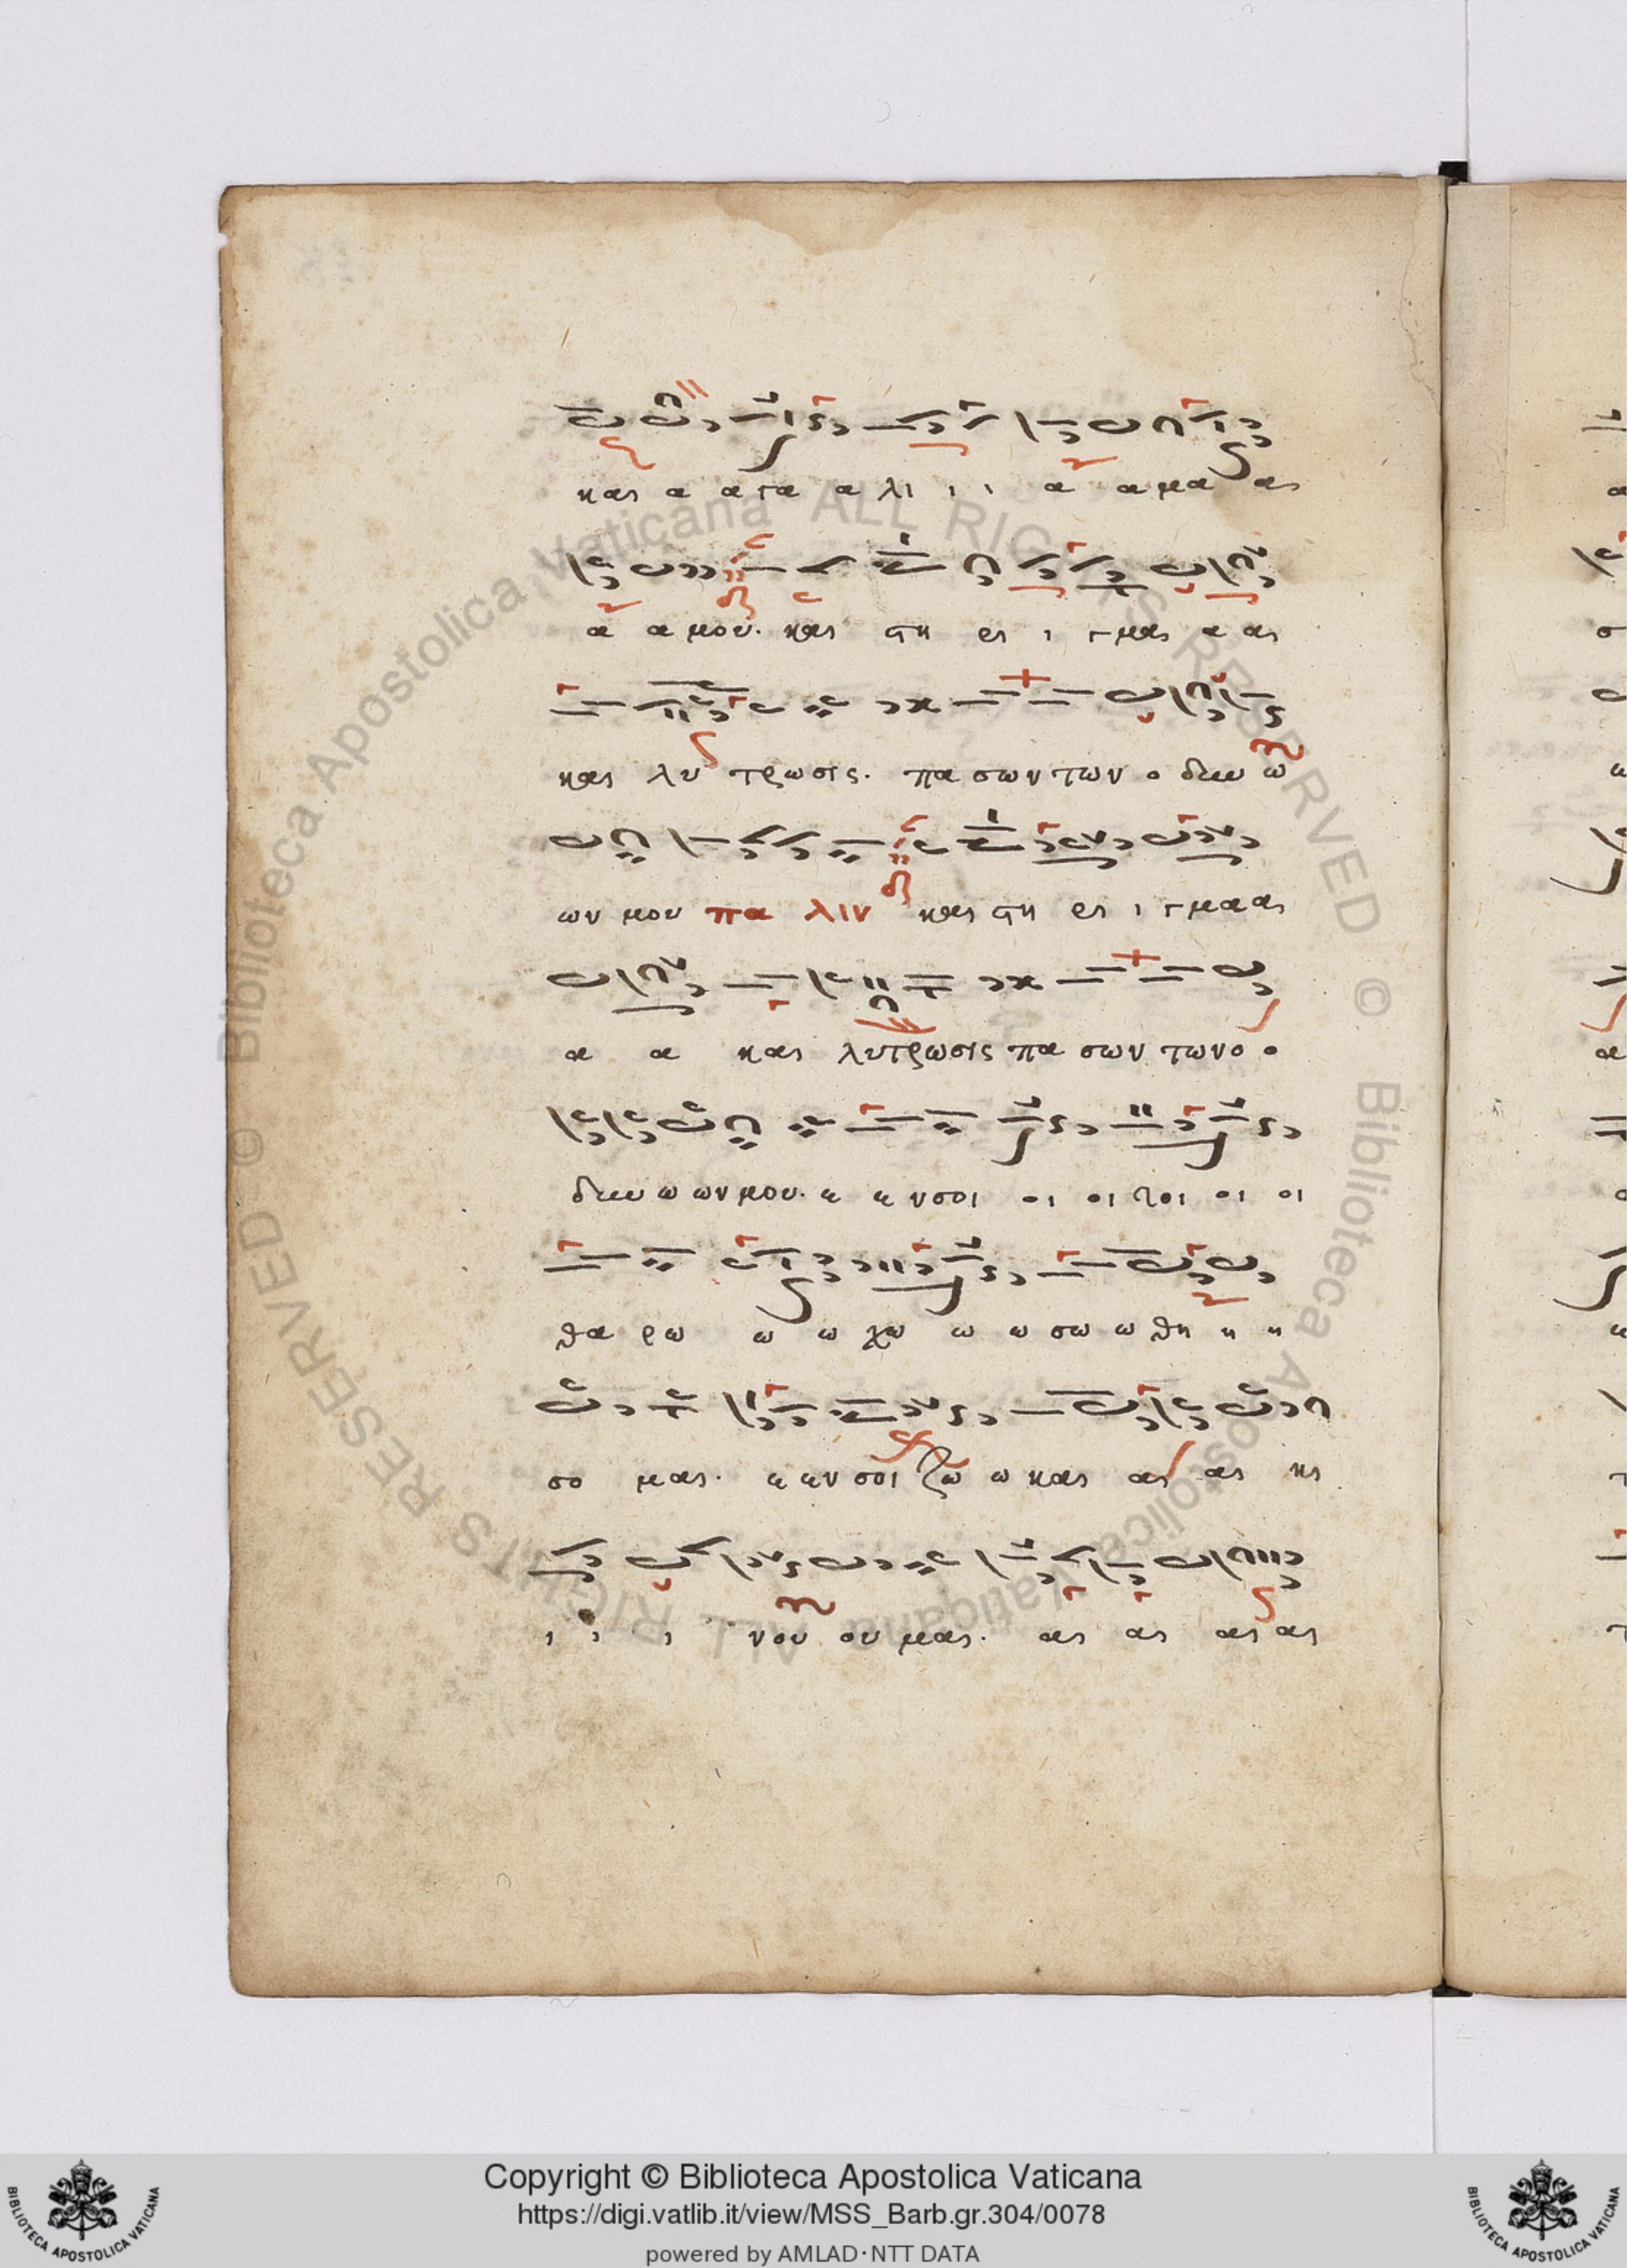 και α α γα α λι ι ι α α μα αι
α α μου. και ϛη ρι ι γμαι α αι
και λυ τρωσις. πα σων των ο δυν ω
ων μου πα λιν και ϛη ρι ι γμα αι
α α και λυτρωσις πα σων των ο ο
δυν ω ων μου. εν σοι οι οι τοι οι οι
θα ρω ω ω χω ω ω σω ω θη η η
σο μαι. εν σοι ζω ω και αι αι κι
ι ι ι νου ου μαι. αι αι αι αι
Biblioteca Apostolica Vaticana ALL RIGHTS RESERVED ©
Biblioteca Apostolica Vaticana ALL RIGHTS RESERVED ©
Copyright © Biblioteca Apostolica Vaticana
https://digi.vatlib.it/view/MSS_Barb.gr.304/0078
powered by AMLAD·NTT DATA
BIBLIOTECA APOSTOLICA VATICANA
BIBLIOTECA APOSTOLICA VATICANA